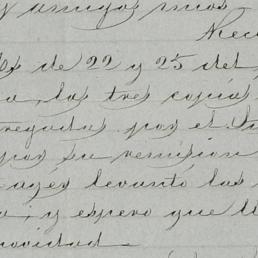 y amigos mios.
Reci
de 22 y 25 del
a, las tres copias
tregadas por el Sr
por su remision
levantó las
y espero que ll
novedad